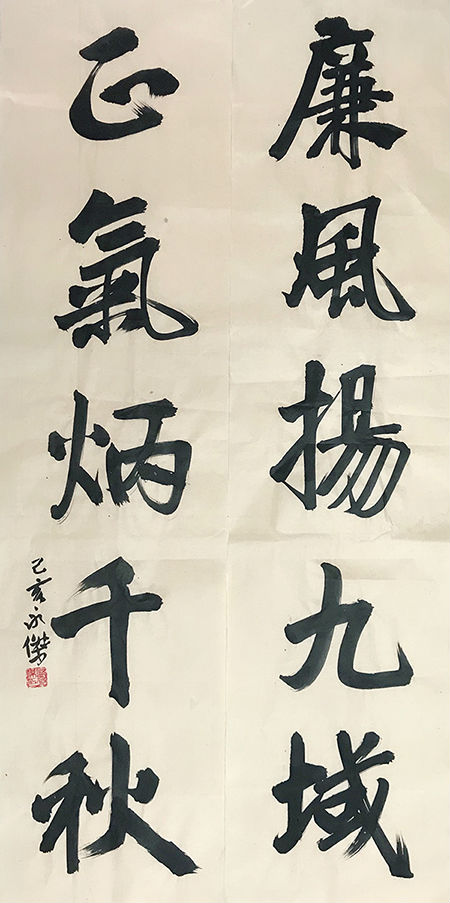 廉風揚九域
正氣炳千秋
己亥永傑